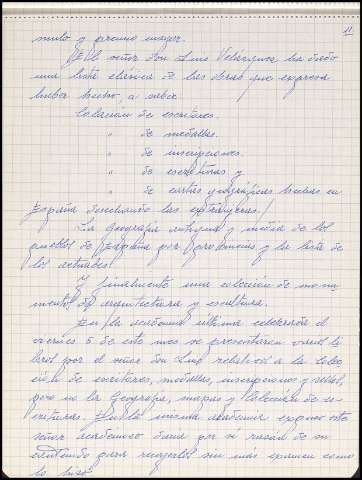 11
mulo y premio mayor.
El señor don Luis Velázquez ha dado
una lista clásica de las obras que expresa
haber hecho, a saber
Colección de escritores.
" de medallas.
" de inscripciones.
" de escrituras y
" de cartas geográficas hechas en
España desechando las extranjeras/
La Geografía antigua y media de los
pueblos de España por provincias y la lista de
los actuales.
Y finalmente una colección de monu
mentos de arquitectura y escultura.
En la academia última celebrada el
viernes 5 de este mes se presentaron varios li
bros por el señor don Luis relativos a la colec
ción de escritores, medallas, inscripciones y
pero no la Geografía, mapas y Colección de es
crituras. En la misma academia expuso este
señor académico daría por si razón de su
contenido para recogerlos sin más examen como
lo hizo